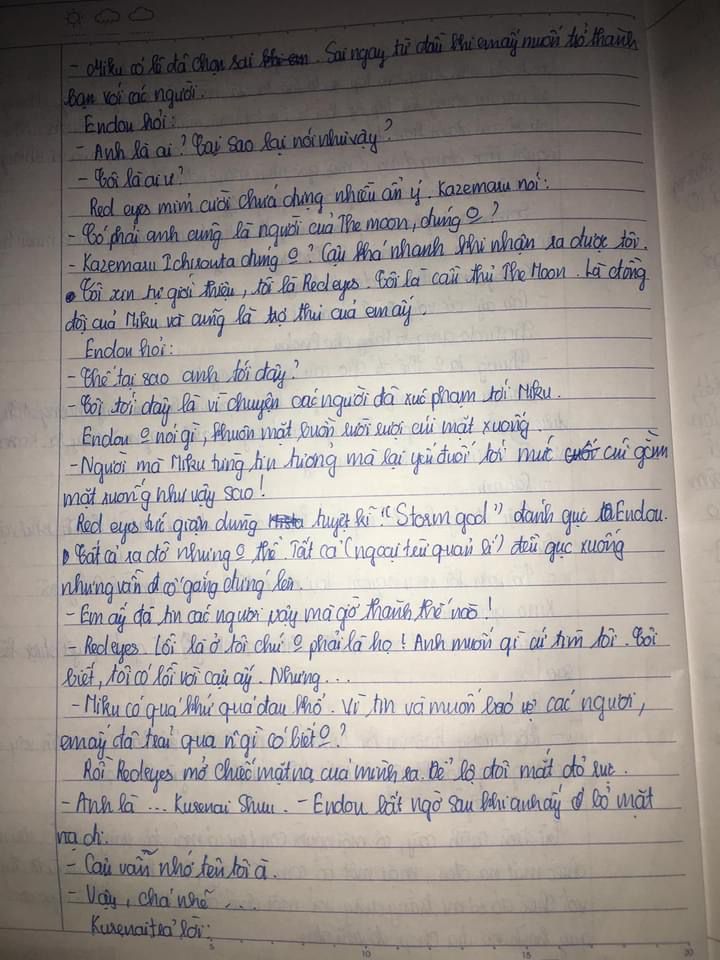 - Miku có lẽ đã chọn sai khi em. Sai ngay từ đầu khi em ấy muốn trở thành
bạn với các người.
Endou hỏi:
- Anh là ai? Tại sao lại nói như vậy?
- Tôi là ai ư?
Red eyes mỉm cười chứa đựng nhiều ẩn ý. Kazemaru nói:
- Có phải anh cũng là người của The moon, đúng o?
- Kazemaru Ichirouta đúng o? Cậu khá nhanh khi nhận ra được tôi.
Tôi xin tự giới thiệu, tôi là Red eyes. Tôi là cầu thủ The Moon. Là đồng
đội của Miku và cũng là trợ thủ của em ấy.
Endou hỏi:
- Thế tại sao anh tới đây?
- Tôi tới đây là vì chuyện các người đã xúc phạm tới Miku.
Endou o nói gì, khuôn mặt buồn rười rượi cúi mặt xuống
- Người mà Miku từng tin tưởng mà lại yếu đuối tới mức cúi gằm
mặt xuống như vậy sao!
Red eyes tức giận dùng tuyệt kĩ "Storm god" đánh gục Endou.
Tất cả ra đỡ nhưng o thể. Tất cả (ngoại trừ quản lí) đều gục xuống
nhưng vẫn cố gắng đứng lên.
- Em ấy đã tin các người vậy mà giờ thành thế nào!
- Red eyes. Lỗi là ở tôi chứ o phải là họ! Anh muốn gì cứ tìm tôi. Tôi
biết, tôi có lỗi với cậu ấy. Nhưng...
- Miku có quá khứ quá đau khổ. Vì tin và muốn bảo vệ các người,
em ấy đã trải qua n~ gì có biết o?
Rồi Red eyes mở chiếc mặt nạ của mình ra. Để lộ đôi mắt đỏ rực.
- Anh là ... Kurenai Shuu. - Endou bất ngờ sau khi anh ấy bỏ mặt
nạ đi.
- Cậu vẫn nhớ tên tôi à.
- Vậy, chả nhẽ ...
Kurenai trả lời:
5 10 15 20